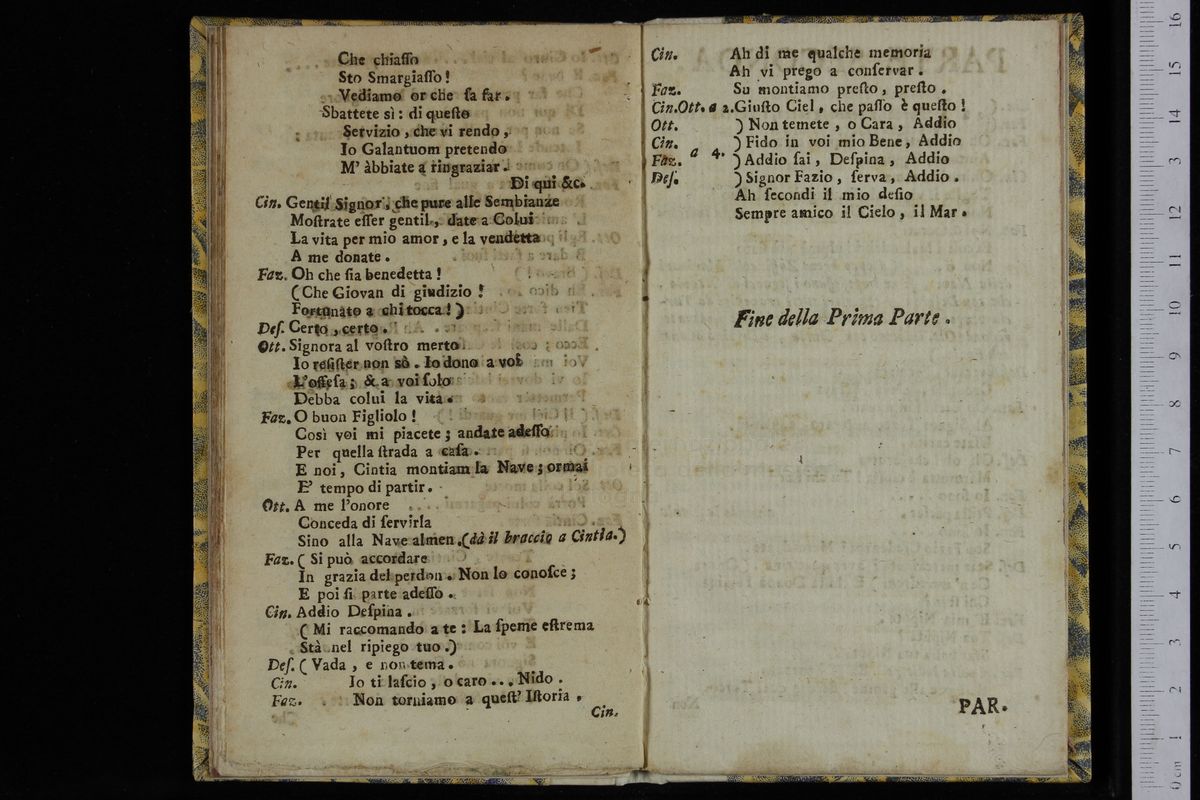 Che chiaſſo
Sto Smargiaſſo!
Vediamo or che ſa far.
Sbattete sì: di queſto
Servizio, che vi rendo,
Io Galantuom pretendo
M' àbbiate a ringraziar.
Di qui &c.
Cin. Gentil Signor, che pure alle Sembianze
Moſtrate eſſer gentil, date a Colui
La vita per mio amor, e la vendetta
A me donate.
Faz. Oh che ſia benedetta!
(Che Giovan di giudizio!
Fortunato a chi tocca!)
Deſ. Certo, certo.
Ott. Signora al voſtro merto
Io reſiſter non sò. Io dono a voi
L'offeſa; & a voi ſolo
Debba colui la vita.
Faz. O buon Figliolo!
Così voi mi piacete; andate adeſſo
Per quella ſtrada a caſa.
E noi, Cintia montiam la Nave; ormai
E' tempo di partir.
Ott. A me l'onore
Conceda di ſervirla
Sino alla Nave almen. (dà il braccio a Cintia.)
Faz. (Si può accordare
In grazia del perdon. Non lo conoſce;
E poi ſi parte adeſſo.
Cin. Addio Deſpina.
(Mi raccomando a te: La ſpeme eſtrema
Stà nel ripiego tuo.)
Deſ. (Vada, e non tema.
Cin. Io ti laſcio, o caro... Nido.
Faz. Non torniamo a queſt' Iſtoria.
Cin.
Cin. Ah di me qualche memoria
Ah vi prego a conſervar.
Faz. Su montiamo preſto, preſto.
Cin. Ott. a 2. Giuſto Ciel, che paſſo è queſto!
Ott. ) Non temete, o Cara, Addio
Cin. ) Fido in voi mio Bene, Addio
Faz. a 4. ) Addio ſai, Deſpina, Addio
Deſ. ) Signor Fazio, ſerva, Addio.
Ah ſecondi il mio deſio
Sempre amico il Cielo, il Mar.
Fine della Prima Parte.
PAR.
16
15
14
13
12
11
10
9
8
7
6
5
4
3
2
1
0 cm